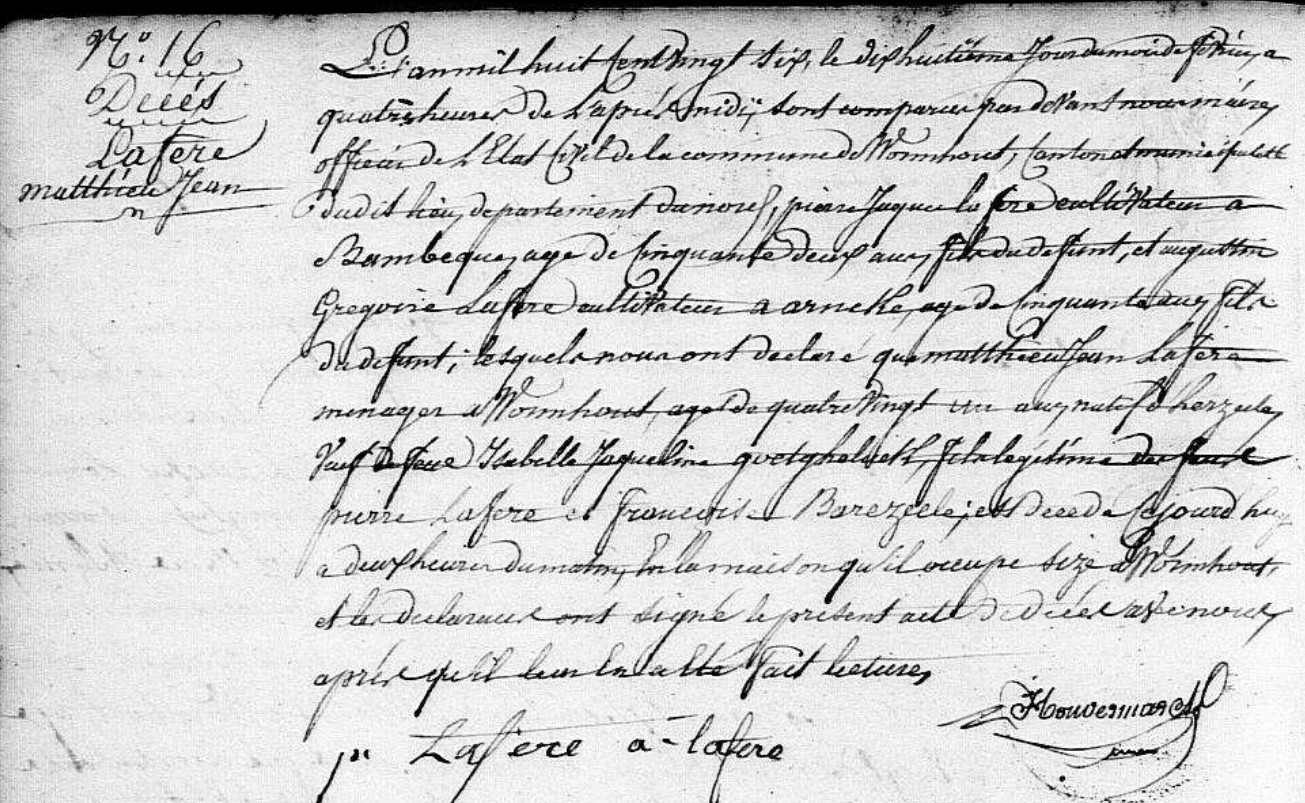 N.° 16
Décés
Lafere
matthieu Jean
L'an mil huit Cent Vingt six, le dix huitième Jour du mois de fevrier, a
quatre heures de l'aprés midi, sont comparus par devant nous maire,
officier de L'Etat Civil de la commune de Wormhout, Canton et municipalité
dudit lieu, departement du nord, pierre Jaques la fere cultiVateur a
Bambeque, age de Cinquante deux ans, fils du defunt, et augustin
Gregoire Lafere cultiVateur a arneke, age de Cinquante ans, fils
du defunt; lesquels nous ont declaré que matthieu Jean Lafere
menager a Wormhout, agé de quatre Vingt un ans, natif d'herzeele,
Veuf de feue Isabelle Jaqueline goetgheluck, fils légitime des feus
pierre Lafere et francoise Barezeele; est decedé Cejourd'huy
a deux heures du matin, En la maison qu'il occupe size a Wormhout,
et les declarans ont signé le present acte de décés avec nous,
aprés qu'il leur En a été fait lecture,
pr Lafere a - lafere
maire